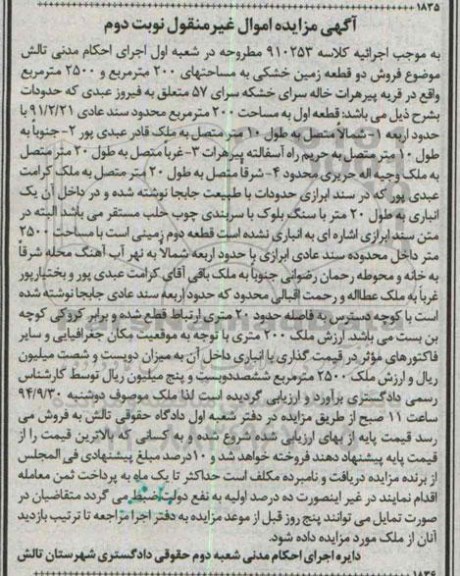 ۱۸۳۵
آگهی مزایده اموال غیرمنقول نوبت دوم
به موجب اجرائیه کلاسه ۹۱۰۲۵۳ مطروحه در شعبه اول اجرای احکام مدنی تالش
موضوع فروش دو قطعه زمین خشکی به مساحتهای ۲۰۰ مترمربع و ۲۵۰۰ مترمربع
واقع در قریه پیرهرات خاله سرای خشکه سرای ۵۷ متعلق به فیروز عبدی که حدودات
بشرح ذیل می باشد: قطعه اول به مساحت ۲۰۰ مترمربع محدود سند عادی ۹۱/۲/۲۱ با
حدود اربعه ۱- شمالاً متصل به طول ۱۰ متر متصل به ملک قادر عبدی پور ۲- جنوباً به
طول ۱۰ متر متصل به حریم راه آسفالته پیرهرات ۳- غرباً متصل به طول ۲۰ متر متصل
به ملک وجیه اله حریری محدود ۴- شرقا متصل به طول ۲۰ متر متصل به ملک کرامت
عبدی پور که در سند ابرازی حدودات با طبیعت جابجا نوشته شده و در داخل آن یک
انباری به طول ۲۰ متر با سنگ بلوک با سربندی چوب حلب مستقر می باشد البته در
متن سند ابرازی اشاره ای به انباری نشده است قطعه دوم زمینی است با مساحت ۲۵۰۰
متر داخل محدوده سند عادی ابرازی با حدود اربعه شمالاً به نهر آب آهنگ محله شرقاً
به خانه و محوطه رحمان رضوانی جنوباً به ملک باقی آقای کرامت عبدی پور و بختیارپور
غرباً به ملک عطااله و رحمت اقبالی محدود که حدود اربعه سند عادی جابجا نوشته شده
است با کوچه دسترس به فاصله حدود ۲۰ متری ارتباط قطع شده و برابر کروکی کوچه
بن بست می باشد. ارزش ملک ۲۰۰ متری با توجه به موقعیت مکان جغرافیایی و سایر
فاکتورهای مؤثر در قیمت گذاری با انباری داخل آن به میزان دویست و شصت میلیون
ریال و ارزش ملک ۲۵۰۰ مترمربع ششصدودویست و پنج میلیون ریال توسط کارشناس
رسمی دادگستری برآورد و ارزیابی گردیده است لذا ملک موصوف دوشنبه ۹۴/۹/۳۰
ساعت ۱۱ صبح از طریق مزایده در دفتر شعبه اول دادگاه حقوقی تالش به فروش می
رسد قیمت پایه از بهای ارزیابی شده شروع شده و به کسانی که بالاترین قیمت را از
قیمت پایه پیشنهاد دهند فروخته خواهد شد و ۱۰درصد مبلغ پیشنهادی فی المجلس
از برنده مزایده دریافت و نامبرده مکلف است حداکثر تا یک ماه به پرداخت ثمن معامله
اقدام نمایند در غیر اینصورت ده درصد اولیه به نفع دولت ضبط می گردد متقاضیان در
صورت تمایل می توانند پنج روز قبل از موعد مزایده به دفتر اجرا مراجعه تا ترتیب بازدید
آنان از ملک مورد مزایده داده شود.
دایره اجرای احکام مدنی شعبه دوم حقوقی دادگستری شهرستان تالش
۱۸۳۶